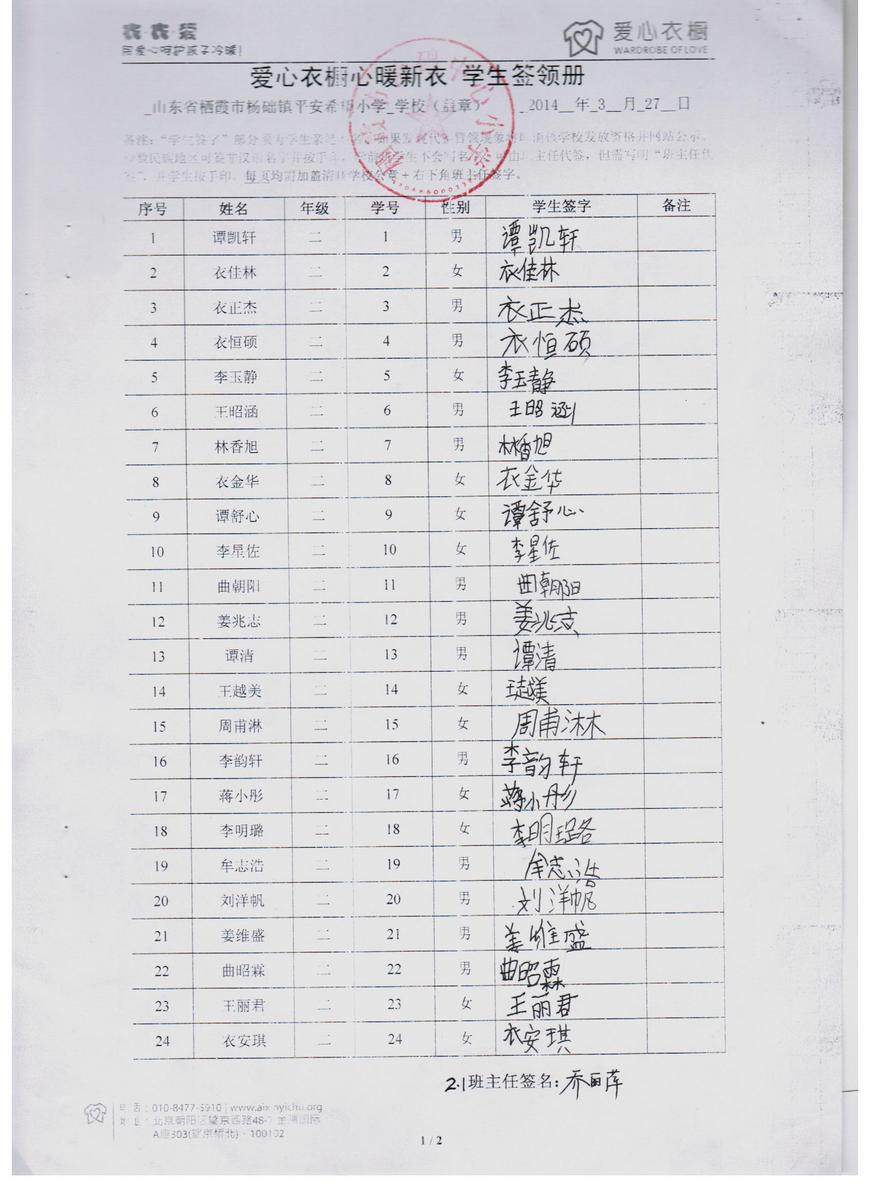 用爱心呵护孩子冷暖!
爱心衣橱
WARDROBE OF LOVE
爱心衣橱心暖新衣 学生签领册
山东省栖霞市杨础镇平安希望小学_学校（盖章） _2014__年_3__月_27__日
序号 姓名 年级 学号 性别 学生签字 备注
1 谭凯轩 二 1 男 谭凯轩
2 衣佳林 二 2 女 衣佳林
3 衣正杰 二 3 男 衣正杰
4 衣恒硕 二 4 男 衣恒硕
5 李玉静 二 5 女 李玉静
6 王昭涵 二 6 男 王昭涵
7 林香旭 二 7 男 林香旭
8 衣金华 二 8 女 衣金华
9 谭舒心 二 9 女 谭舒心
10 李星佐 二 10 女 李星佐
11 曲朝阳 二 11 男 曲朝阳
12 姜兆志 二 12 男 姜兆志
13 谭清 二 13 男 谭清
14 王越美 二 14 女 王越美
15 周甫淋 二 15 女 周甫淋
16 李韵轩 二 16 男 李韵轩
17 蒋小彤 二 17 女 蒋小彤
18 李明璐 二 18 女 李明璐
19 牟志浩 二 19 男 牟志浩
20 刘洋帆 二 20 男 刘洋帆
21 姜维盛 二 21 男 姜维盛
22 曲昭霖 二 22 男 曲昭霖
23 王丽君 二 23 女 王丽君
24 衣安琪 二 24 女 衣安琪
2.1班主任签名:乔丽萍
电话：010-8477-5910 | www.aixinyichu.org
A座303(望京桥北) · 100102
1 / 2